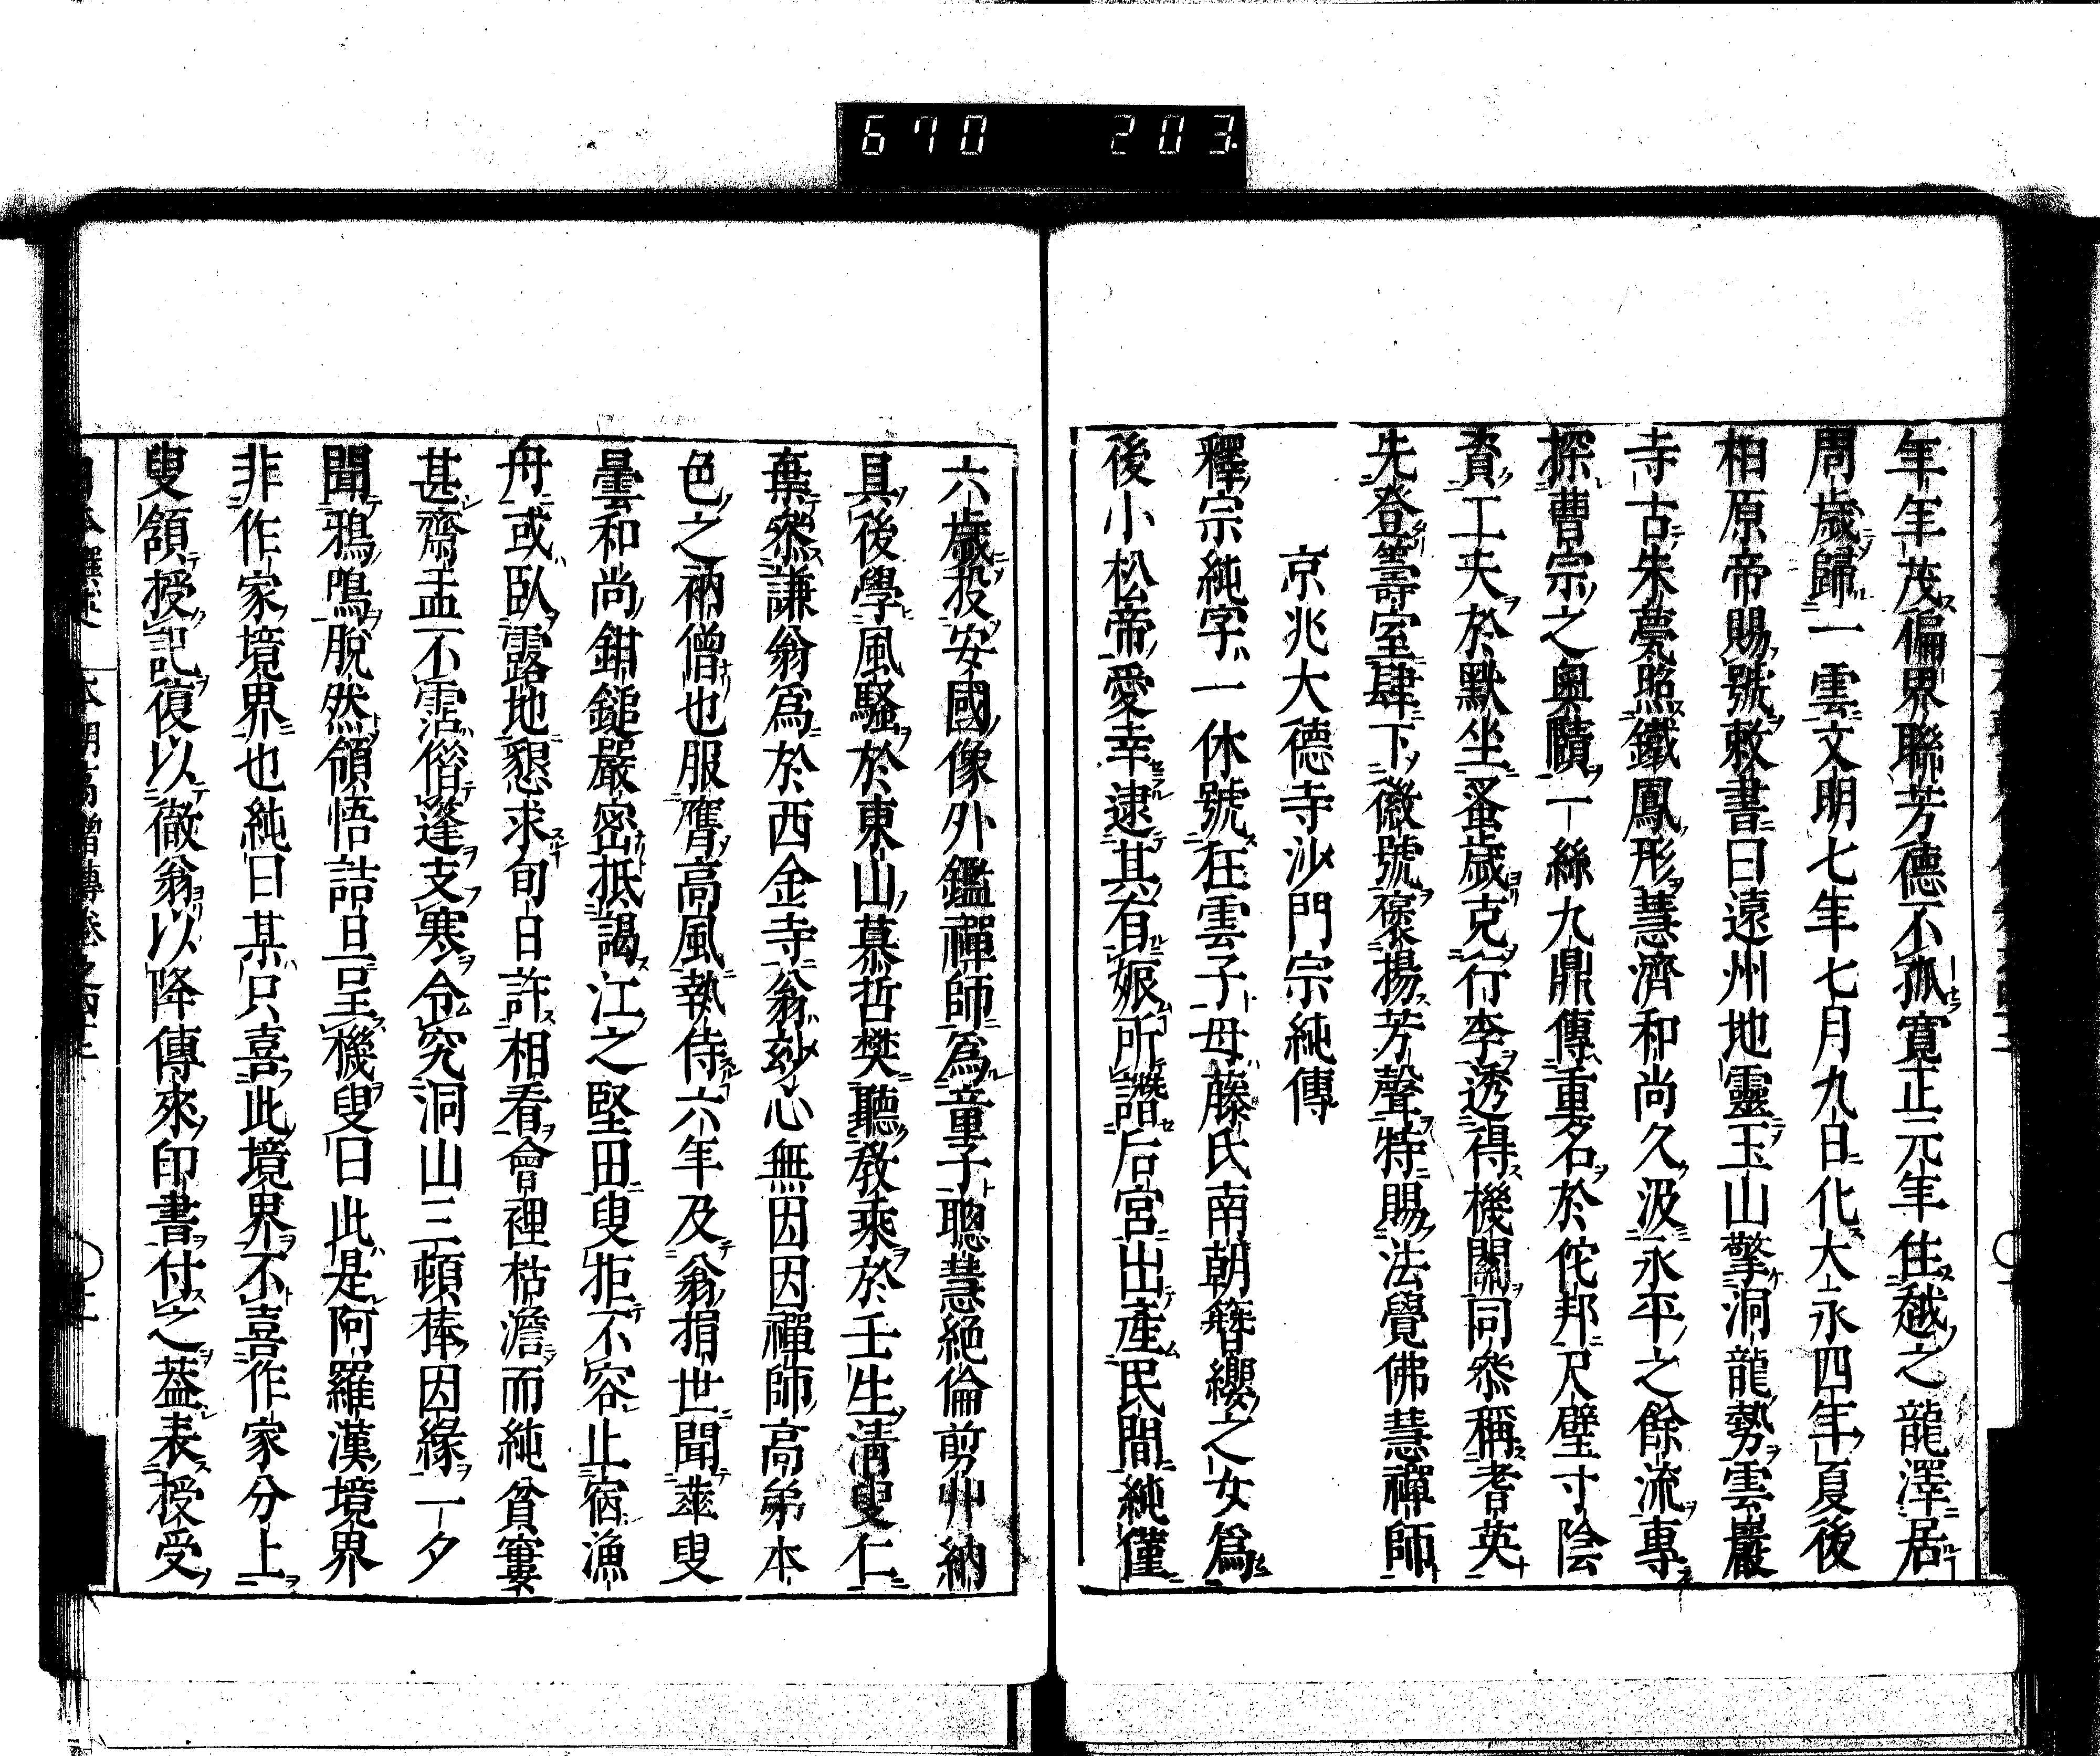 670 203
年年茂偏界聯芳德不孤寬正元年住越之龍澤居
周歲歸一雲文明七年七月九日化大永四年夏後
柏原帝賜號敕書曰遠州地靈玉山擎洞龍勢雲巖
寺古朱甍照鐵鳳形慧濟和尚久汲永平之餘流專
探曹宗之奧賾一絲九鼎傳重名於佗邦尺璧寸陰
資工夫於默坐蚤歲克行李透得機關同參稱耆英
先登籌室肆下徽號褒揚芳聲特賜法覺佛慧禪師
京兆大德寺沙門宗純傳
釋宗純字一休號狂雲子母藤氏南朝簪纓之女爲
後小松帝愛幸逮其有娠所譖后宮出產民間純僅
六歲投安國像外鑑禪師爲童子聰慧絕倫剪艸納
具後學風騷於東山慕哲樊聽教乘於壬生清叟仁
棄然謙翁爲於西金寺翁玅心無因因禪師高弟本
色之衲僧也服膺高風執侍六年及翁捐世聞華叟
曇和尚鉗鎚嚴密抵謁江之堅田叟拒不容止宿漁
舟或臥露地懇求旬日許相看會裡枯澹而純貧窶
甚齋盂不霑偕逢支寒令究洞山三頓棒因緣一夕
聞鴉鳴脫然領悟詰旦呈機叟曰此是阿羅漢境界
非作家境界也純曰某只喜此境界不喜作家分上
叟頷授記復以徹翁以降傳來印書付之葢表授受
本朝高僧傳卷之四十